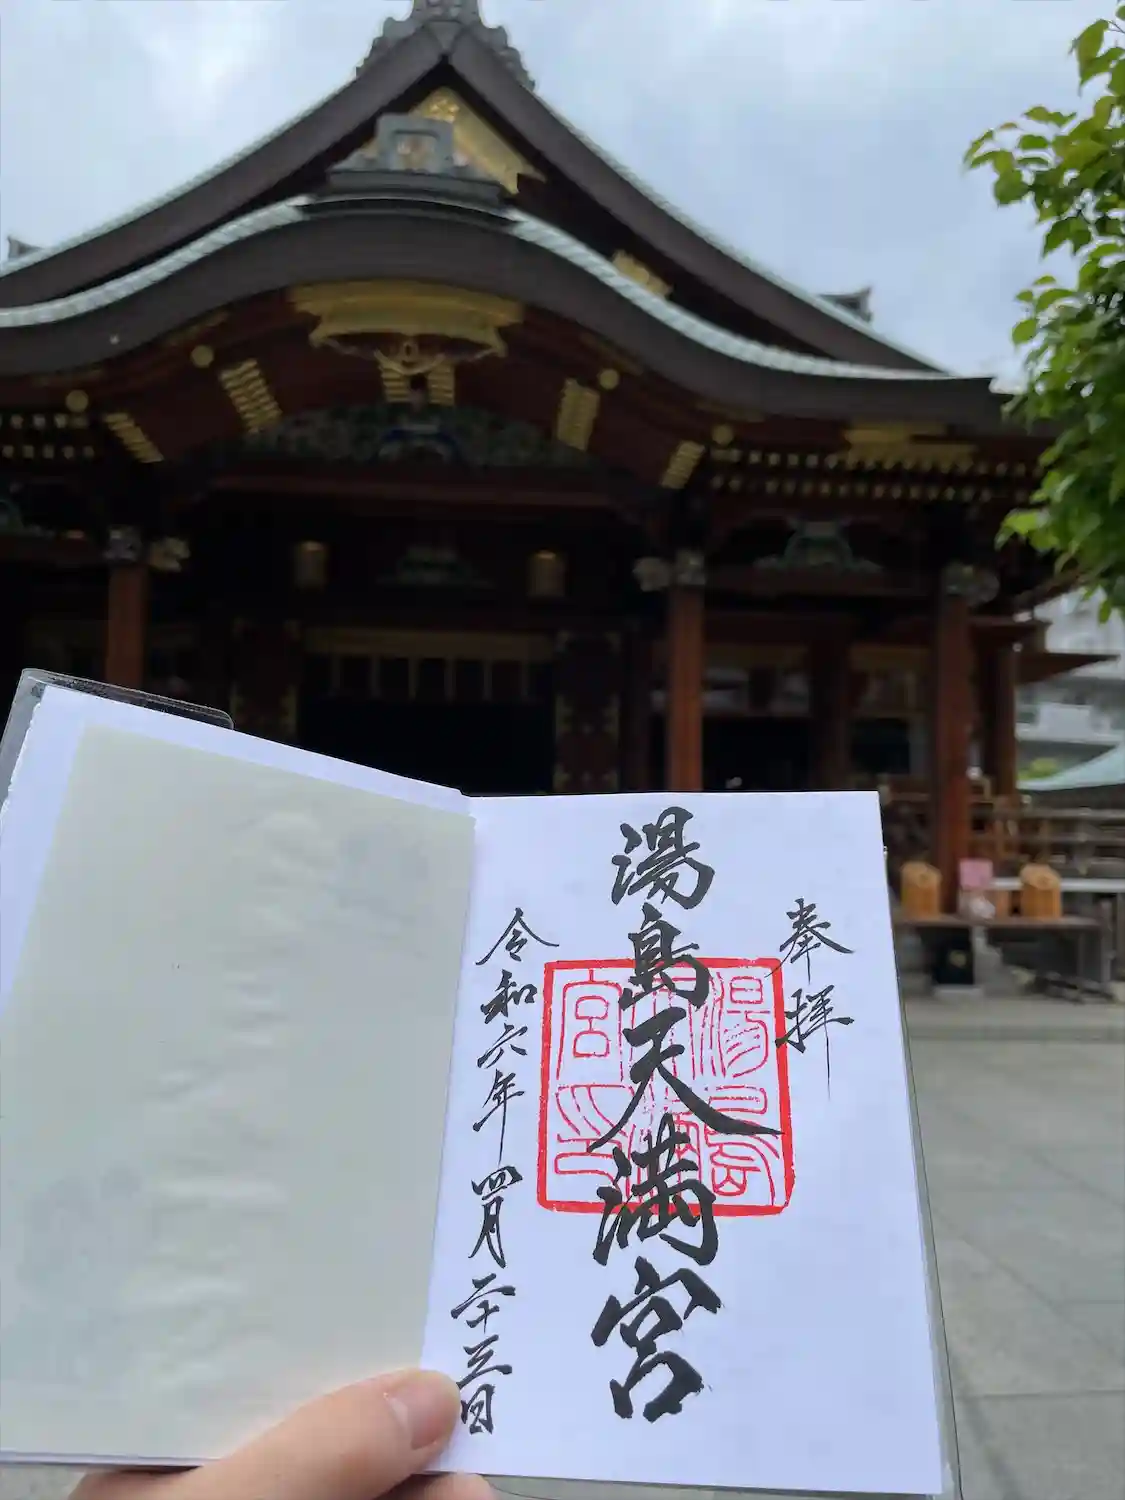 奉拝
湯島天満宮
湯島天満宮印
令和六年四月二十三日